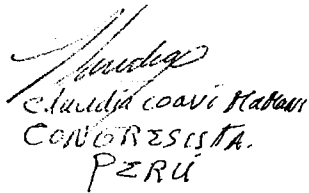 Claudia Coari Mamani
CONGRESISTA.
PERÚ